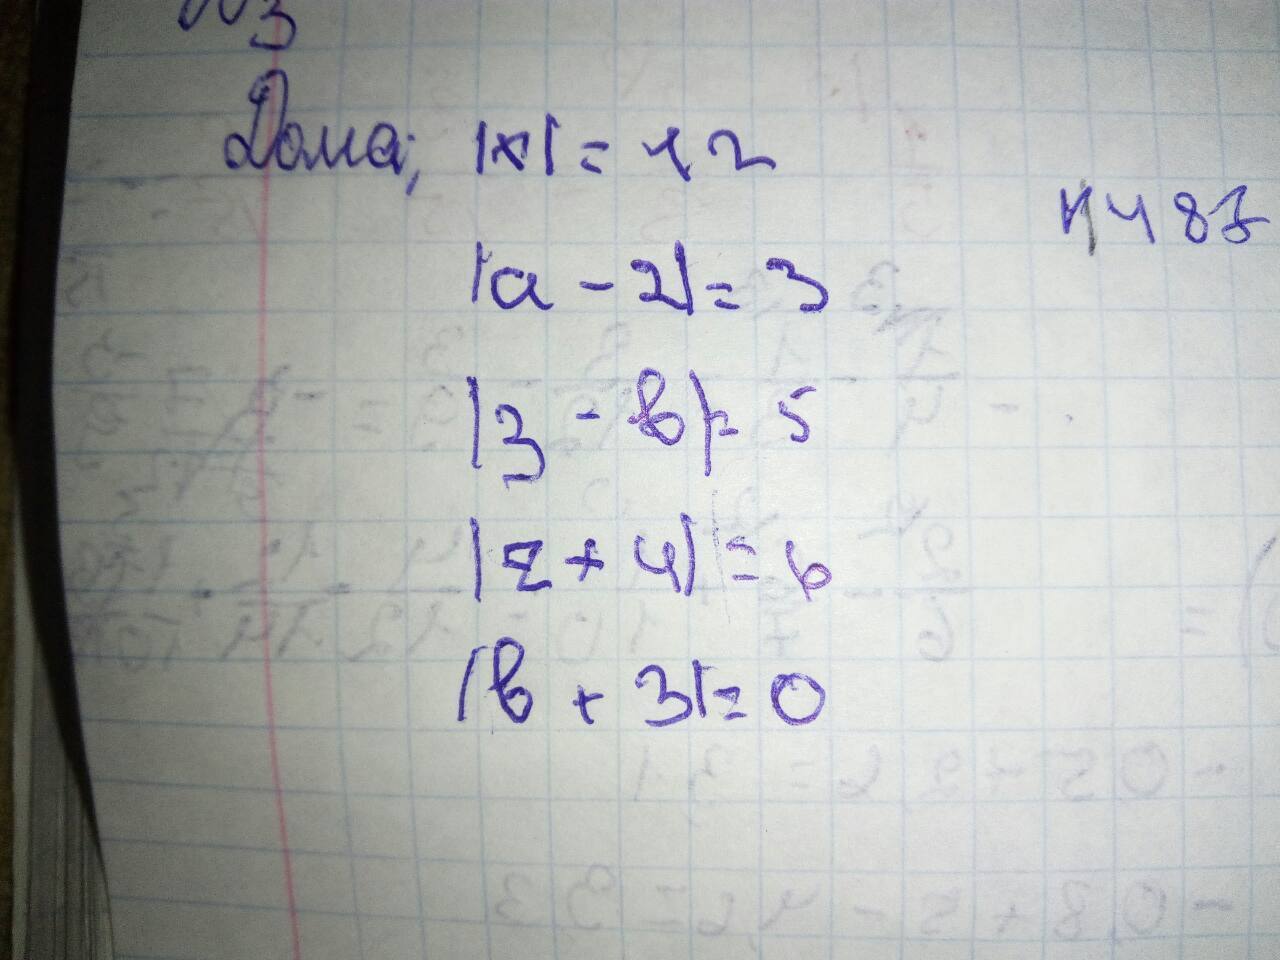 №3
Дома; |x| = 12
№487
|a - 2| = 3
|3 - b| = 5
|z + 4| = 6
|b + 3| = 0